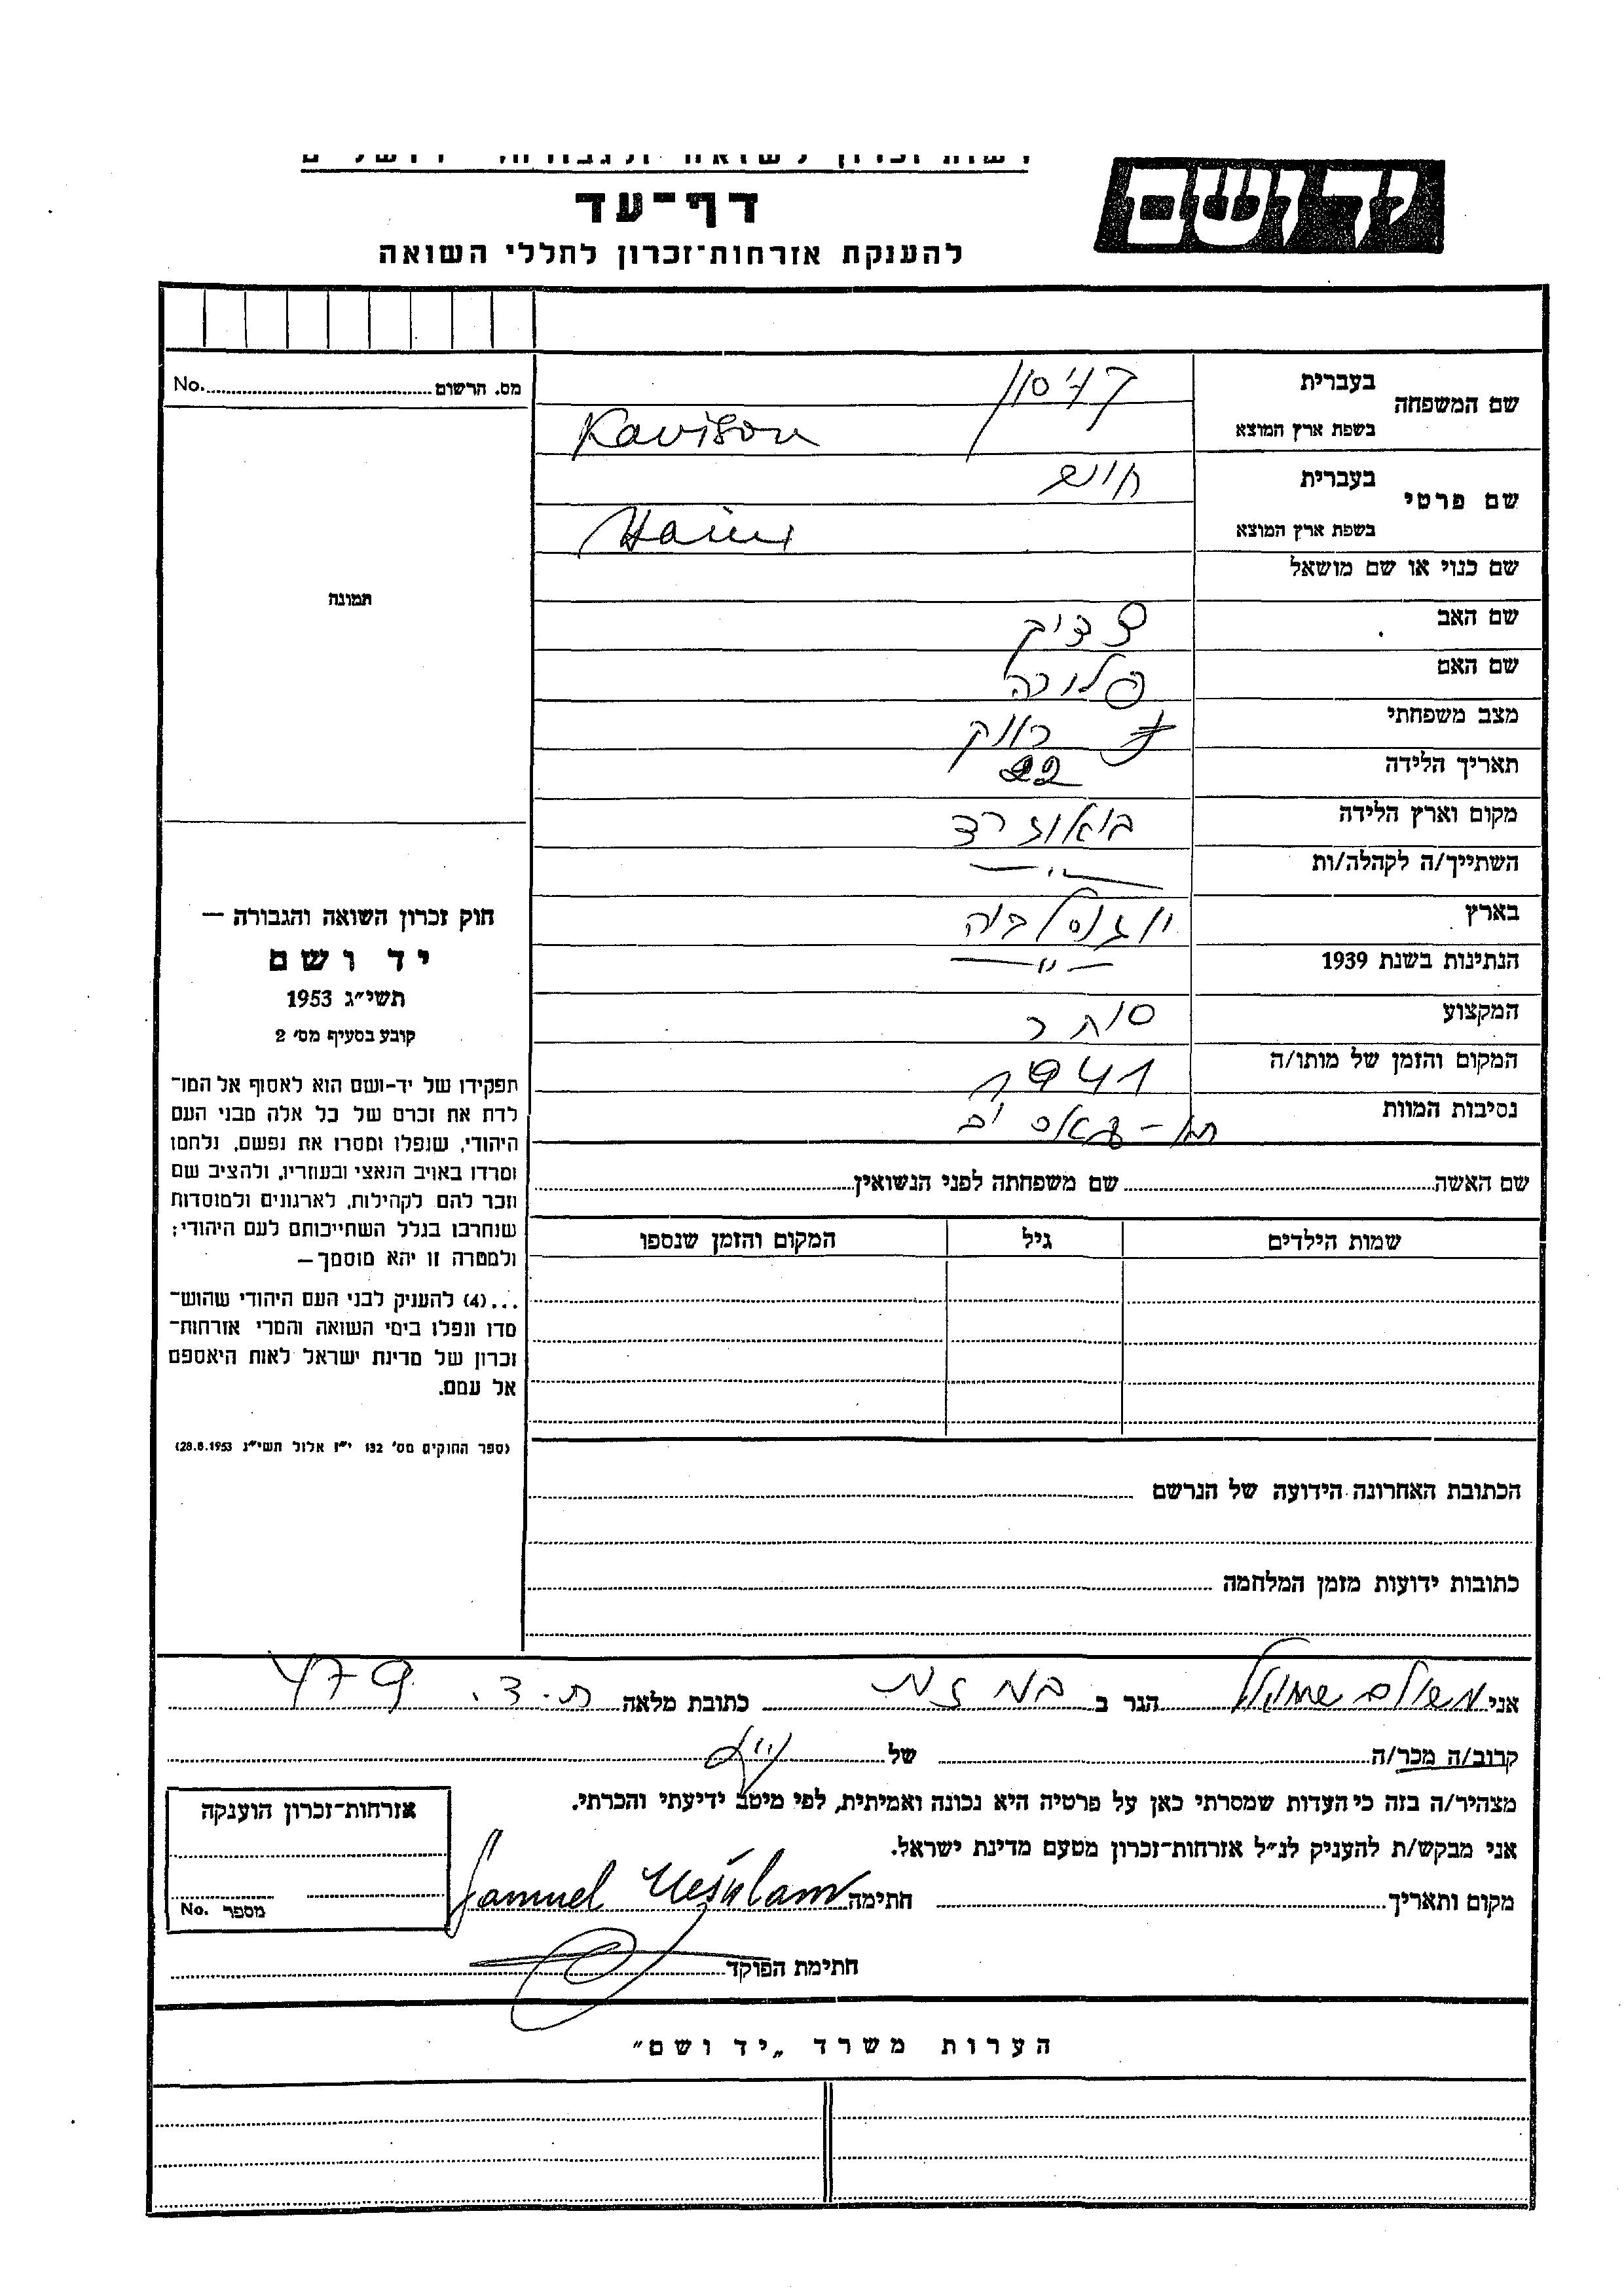 יד ושם
דף־עד
להענקת אזרחות־זכרון לחללי השואה
No. מס. הרשום
שם המשפחה
בעברית
בשפת ארץ המוצא Kavison
שם פרטי
בעברית חיים
בשפת ארץ המוצא Haim
תמונה
שם כנוי או שם מושאל
שם האב צדיק
שם האם
מצב משפחתי רווק
תאריך הלידה 22
מקום וארץ הלידה
השתייך/ה לקהלה/ות — " —
בארץ יוגוסלביה
הנתינות בשנת 1939 — " —
המקצוע סוחר
המקום והזמן של מותו/ה 1941
נסיבות המוות
שם האשה שם משפחתה לפני הנשואין
שמות הילדים גיל המקום והזמן שנספו
חוק זכרון השואה והגבורה —
יד ושם
תשי"ג 1953
קובע בסעיף מס' 2
תפקידו של יד-ושם הוא לאסוף אל המו־
לדת את זכרם של כל אלה מבני העם
היהודי, שנפלו ומסרו את נפשם, נלחמו
ומרדו באויב הנאצי ובעוזריו, ולהציב שם
וזכר להם לקהילות, לארגונים ולמוסדות
שנחרבו בגלל השתייכותם לעם היהודי;
ולמטרה זו יהא מוסמך —
...(4) להעניק לבני העם היהודי שהוש־
מדו ונפלו בימי השואה והמרי אזרחות־
זכרון של מדינת ישראל לאות היאספם
אל עמם.
(ספר החוקים מס' 132 י"ז אלול תשי"ג 28.8.1953)
הכתובת האחרונה הידועה של הנרשם
כתובות ידועות מזמן המלחמה
אני משולם שמואל הגר ב כתובת מלאה ת.ד. 479
קרוב/ה מכר/ה של
מצהיר/ה בזה כי העדות שמסרתי כאן על פרטיה היא נכונה ואמיתית, לפי מיטב ידיעתי והכרתי.
אני מבקש/ת להעניק לנ"ל אזרחות־זכרון מטעם מדינת ישראל.
מקום ותאריך חתימה Samuel Mešulam
חתימת הפוקד
אזרחות־זכרון הוענקה
No. מספר
הערות משרד "יד ושם"